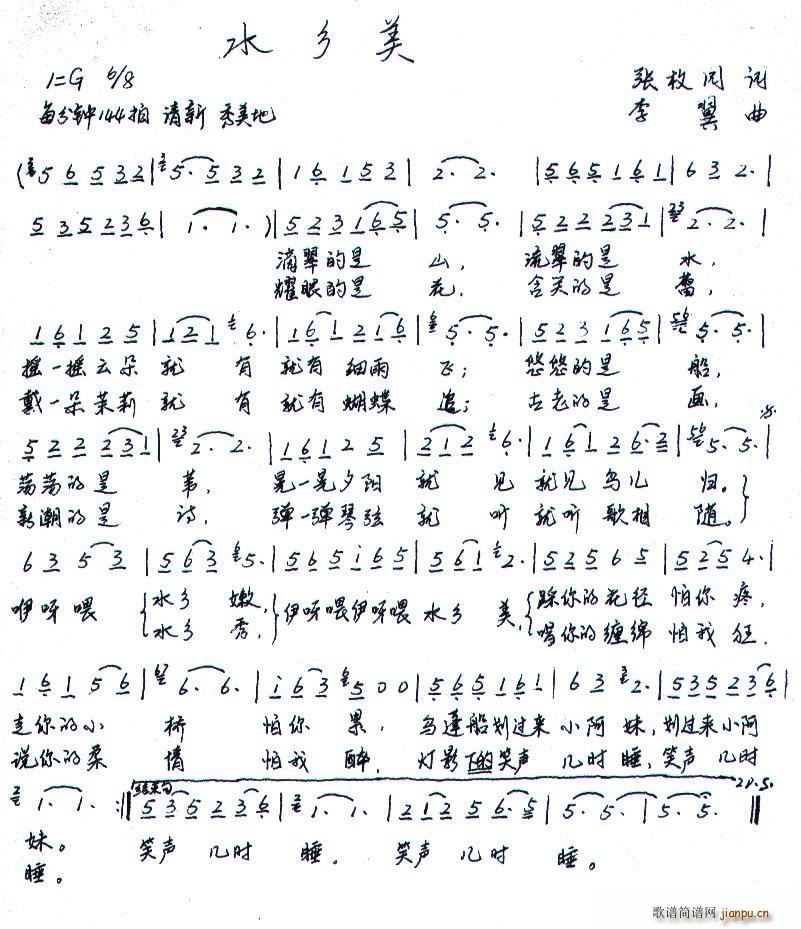 水乡美
1=G 6/8
张枚同 词
每分钟144拍 清新 秀美地
李翼 曲
(5 6 5 3 2 | 5. 5 3 2 | 1 6 1 5 3 | 2. 2. | 5 6 5 1 6 1 | 6 3 2. |
5 3 5 2 3 6 | 1. 1. ) | 5 2 3 1 6 5 | 5. 5. | 5 2 2 2 3 1 | 2. 2. |
滴翠的是 山, 流翠的是 水,
耀眼的是 花, 含羞的是 蕾,
1 6 1 2 5 | 1 2 1 6. | 1 6 1 2 1 6 | 5. 5. | 5 2 3 1 6 5 | 5. 5. |
摇一摇云朵 就 有 就有细雨 飞; 悠悠的是 船,
戴一朵茉莉 就 有 就有蝴蝶 追; 古老的是 画,
5 2 2 2 3 1 | 2. 2. | 1 6 1 2 5 | 2 1 2 6. | 1 6 1 2 6 2 | 5. 5. |
荡荡的是 苇, 晃一晃夕阳 就 见 就见鸟儿 归。
新潮的是 诗, 弹一弹琴弦 就 听 就听歌相 随。
6 3 5 3 | 5 6 3 5. | 5 6 5 i 6 5 | 5 6 1 2. | 5 2 5 6 5 | 5 2 5 4. |
咿呀喂 水乡 嫩, 伊呀喂伊呀喂 水乡 美, 踩你的花径 怕你 疼,
水乡 秀, 喝你的缠绵 怕我 狂.
1 6 1 5 6 | 6. 6. | i 6 3 5 0 0 | 5 6 5 1 6 1 | 6 3 2. | 5 3 5 2 3 6 |
走你的小 桥 怕你 累, 乌篷船划过来 小阿 妹, 划过来小阿
说你的柔 情 怕我 醉, 灯影下的笑声 几时 睡, 笑声 几时
结束句
1. 1. :|| 5 3 5 2 3 6 | 1. 1. | 2 1 2 5 6. 5 | 5. 5. | 5. 5. ||
妹。 笑声 几时 睡. 笑声 几时 睡。
睡。
歌谱简谱网
jianpu.cn